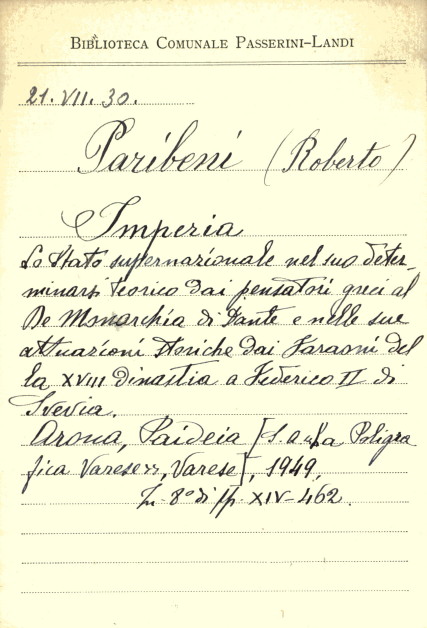 BIBLIOTECA COMUNALE PASSERINI-LANDI
21. VII. 30.
Paribeni (Roberto)
Imperia
Lo Stato supernazionale nel suo deter-
minarsi teorico dai pensatori greci al
De Monarchia di Dante e nelle sue
attuazioni storiche dai Faraoni del
la XVIII dinastia a Federico II di
Svevia.
Arona, Paideia [S. a La Poligra
fica Varese», Varese], 1949,
In 8° di pp. XIV-462.